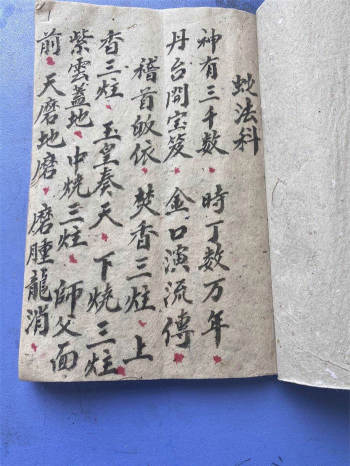 虵法科
神有三千數 時丁数万年
丹台開宝笈 金口演流傳
稽首皈依 焚香三炷 上
香三炷 玉皇奏天 下燒三炷
紫雲蓋地 中燒三炷 師父面
前 天磨地磨 磨腫龍消